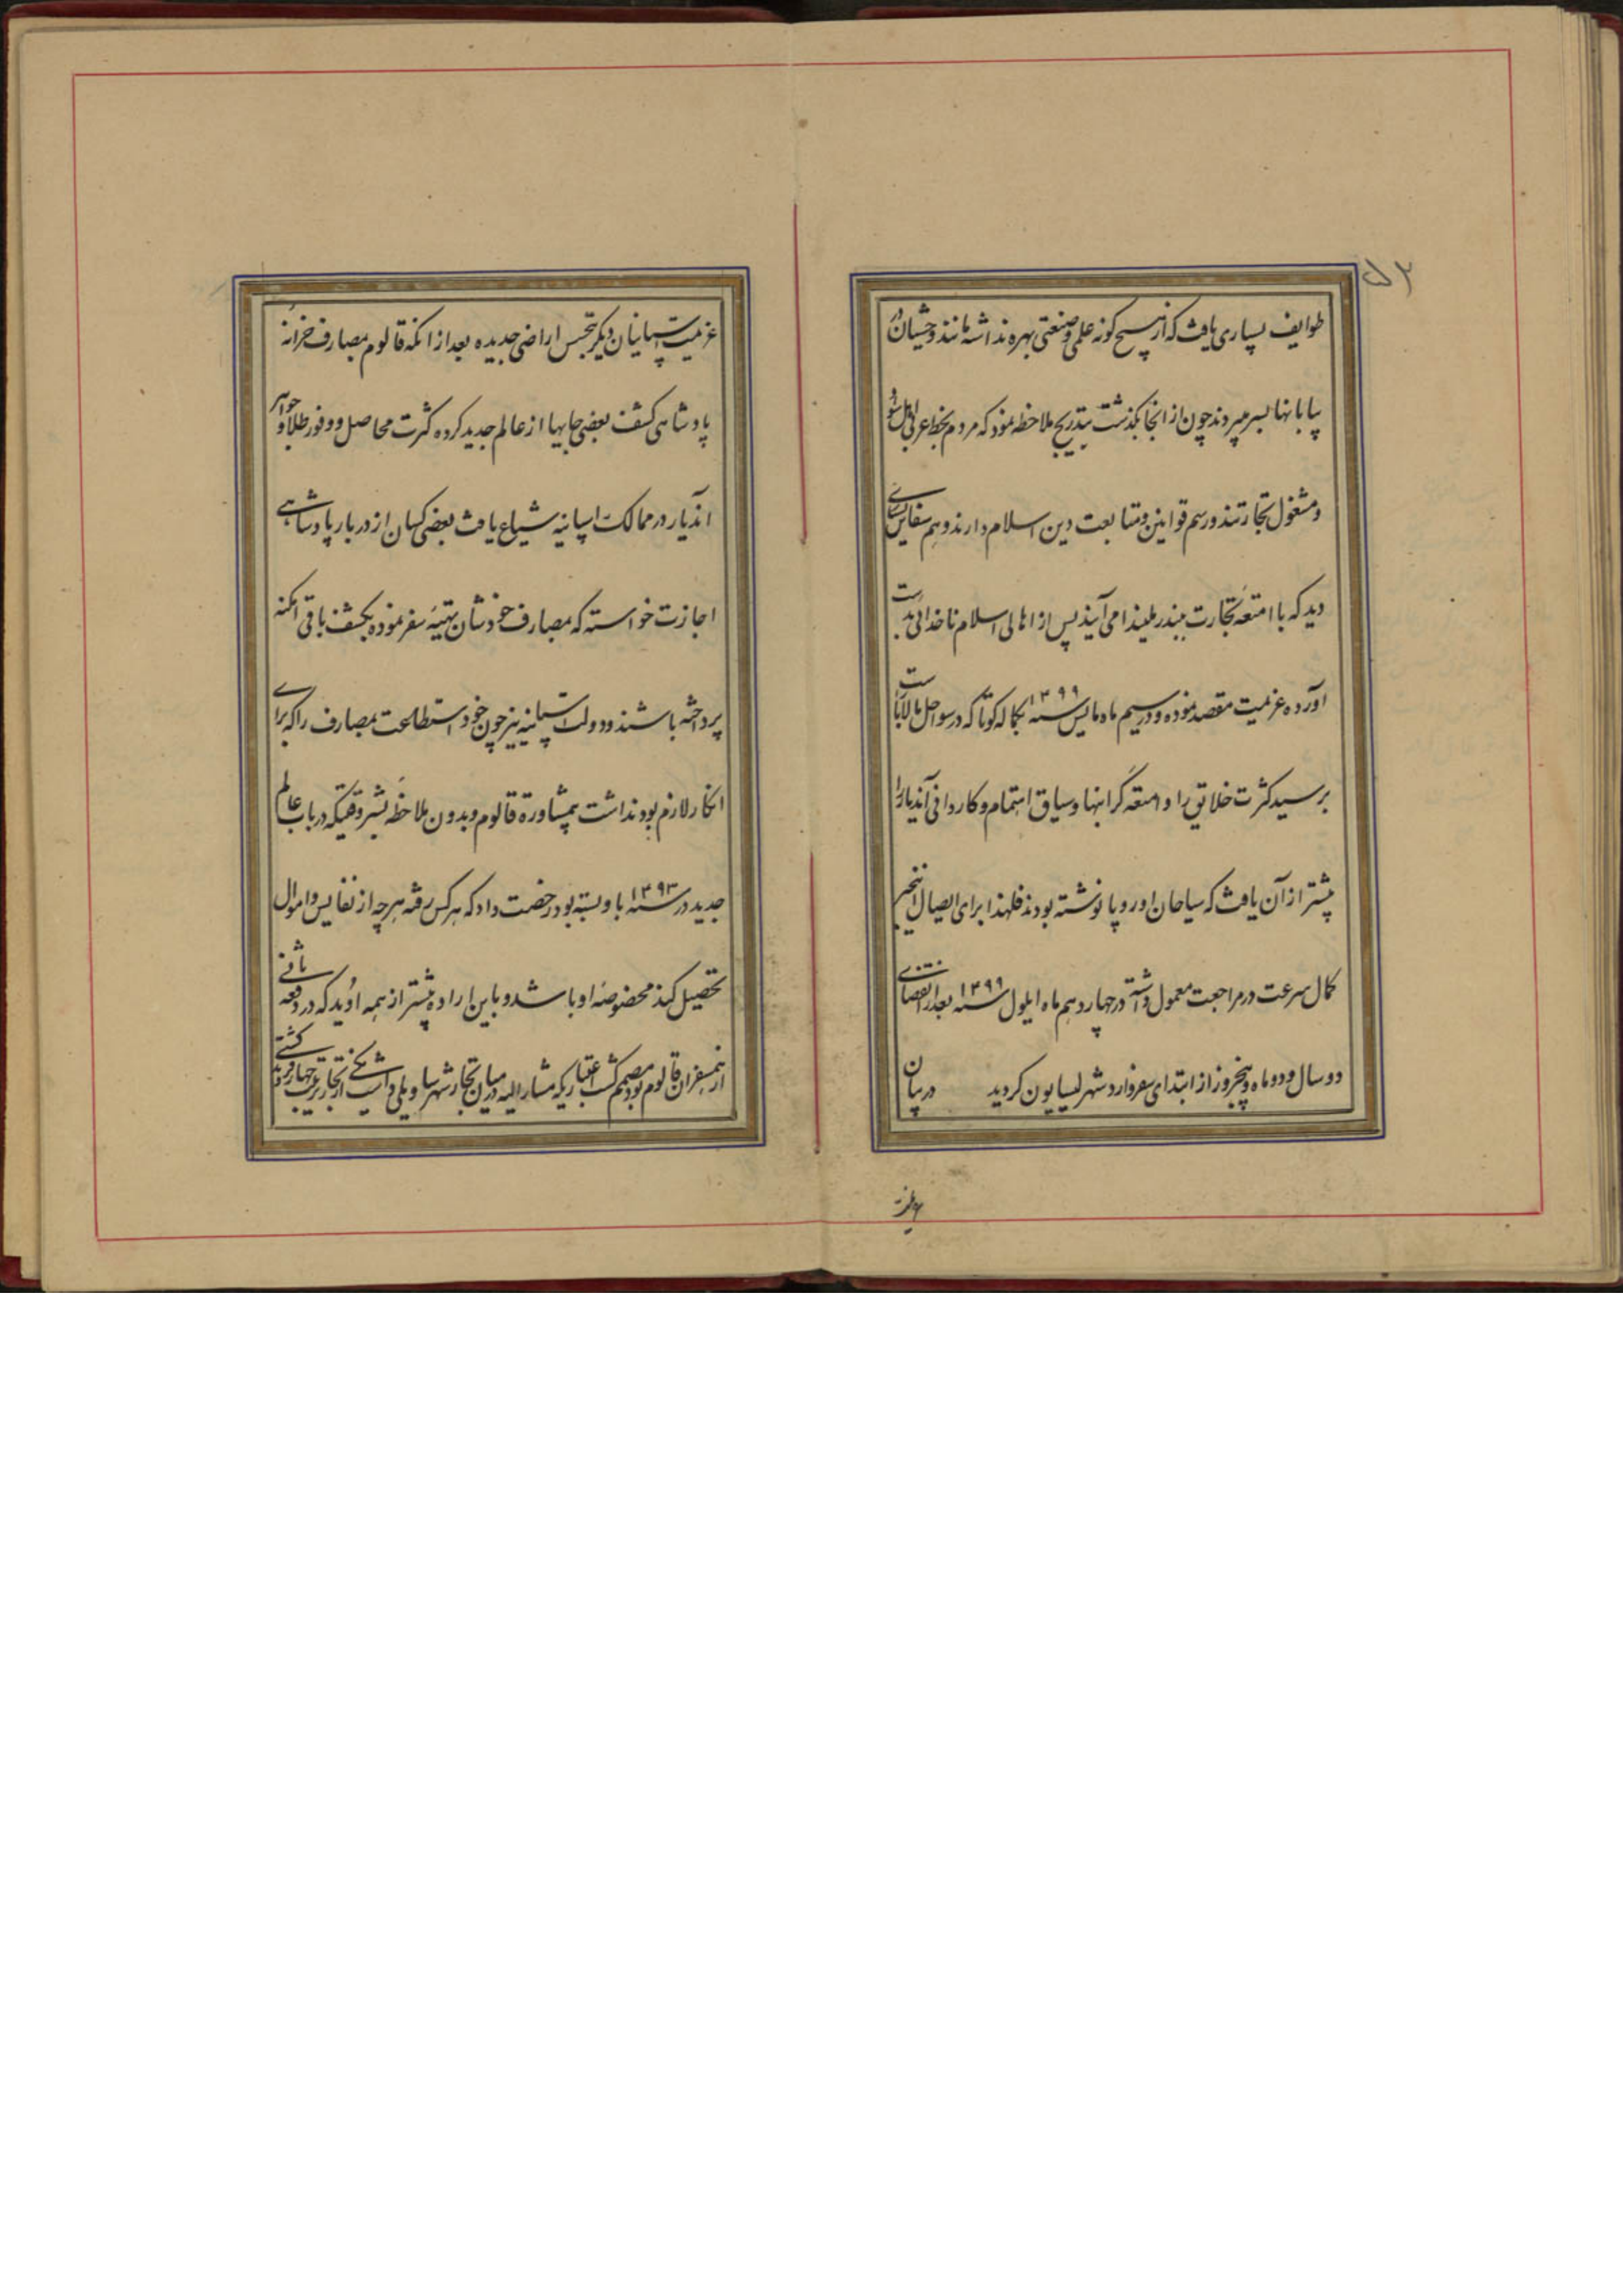 ۵۲
طوایف بسیاری یافت که از هیچ گونه علمی و صنعتی بهره نداشته مانند وحشیان در
بیابانها بسر میبردند چون از انجا بگذشت بتدریج ملاحظه نمود که مردم بخط عربی
و مشغول تجارتند و رسم قوانین و متابعت دین اسلام دارند و هم سفاین بسیاری
دید که با امتعهٔ تجارت ببندر ملیندا می آیند پس از اهالی اسلام ناخدائی بدست
آورده عزیمت مقصد نموده و در بیسیم ماه مایس سنه ۱۴۹۹ بکاله کوتا که در سواحل مالاباست
برسید کثرت خلایق را و امتعه گرانبها و سیاق اهتمام و کاردانی آندیار را
بیشتر از آن یافت که سیاحان اوروپا نوشته بودند فلهذا برای ایصال اینخبر
کمال سرعت در مراجعت معمول داشته در چهاردهم ماه ایلول سنه ۱۴۹۹ بعد از انقضای
دو سال و دو ماه و پنجروز از ابتدای سفر وارد شهر لیسابون گردید در بیان
عزیمت
عزیمت اسپانیان دیگر بتجسس اراضی جدیده بعد از انکه قالوم بمصارف خزانه
پادشاهی کشف بعضی جایها از عالم جدید کرده کثرت محاصل و وفور طلا و جواهر
اندیار در ممالک اسپانیه شیاع یافت بعضی کسان از دربار پادشاهی
اجازت خواسته که بمصارف خودشان تهیهٔ سفر نموده بکشف باقی امکنه
پرداخته باشند و دولت اسپانیه نیز چون خود استطاعت بمصارف را که برای
اینکار لازم بود نداشت بمشاورة قالوم و بدون ملاحظه بشروطیکه در باب عالم
جدید در سنه ۱۴۹۳ با او بسته بود رخصت داد که هر کس رفته هر چه از نفایس و اموال
تحصیل کند مخصوصهٔ او باشد و باین اراده پیشتر از همه اوید که در دفعه ثانی
از همسفران قالوم بود مصمم گشت اعتباریکه مشار الیه در میان تجار شهر ساویلی داشت یکی از تجار ترتیب چهار فروند کشتی